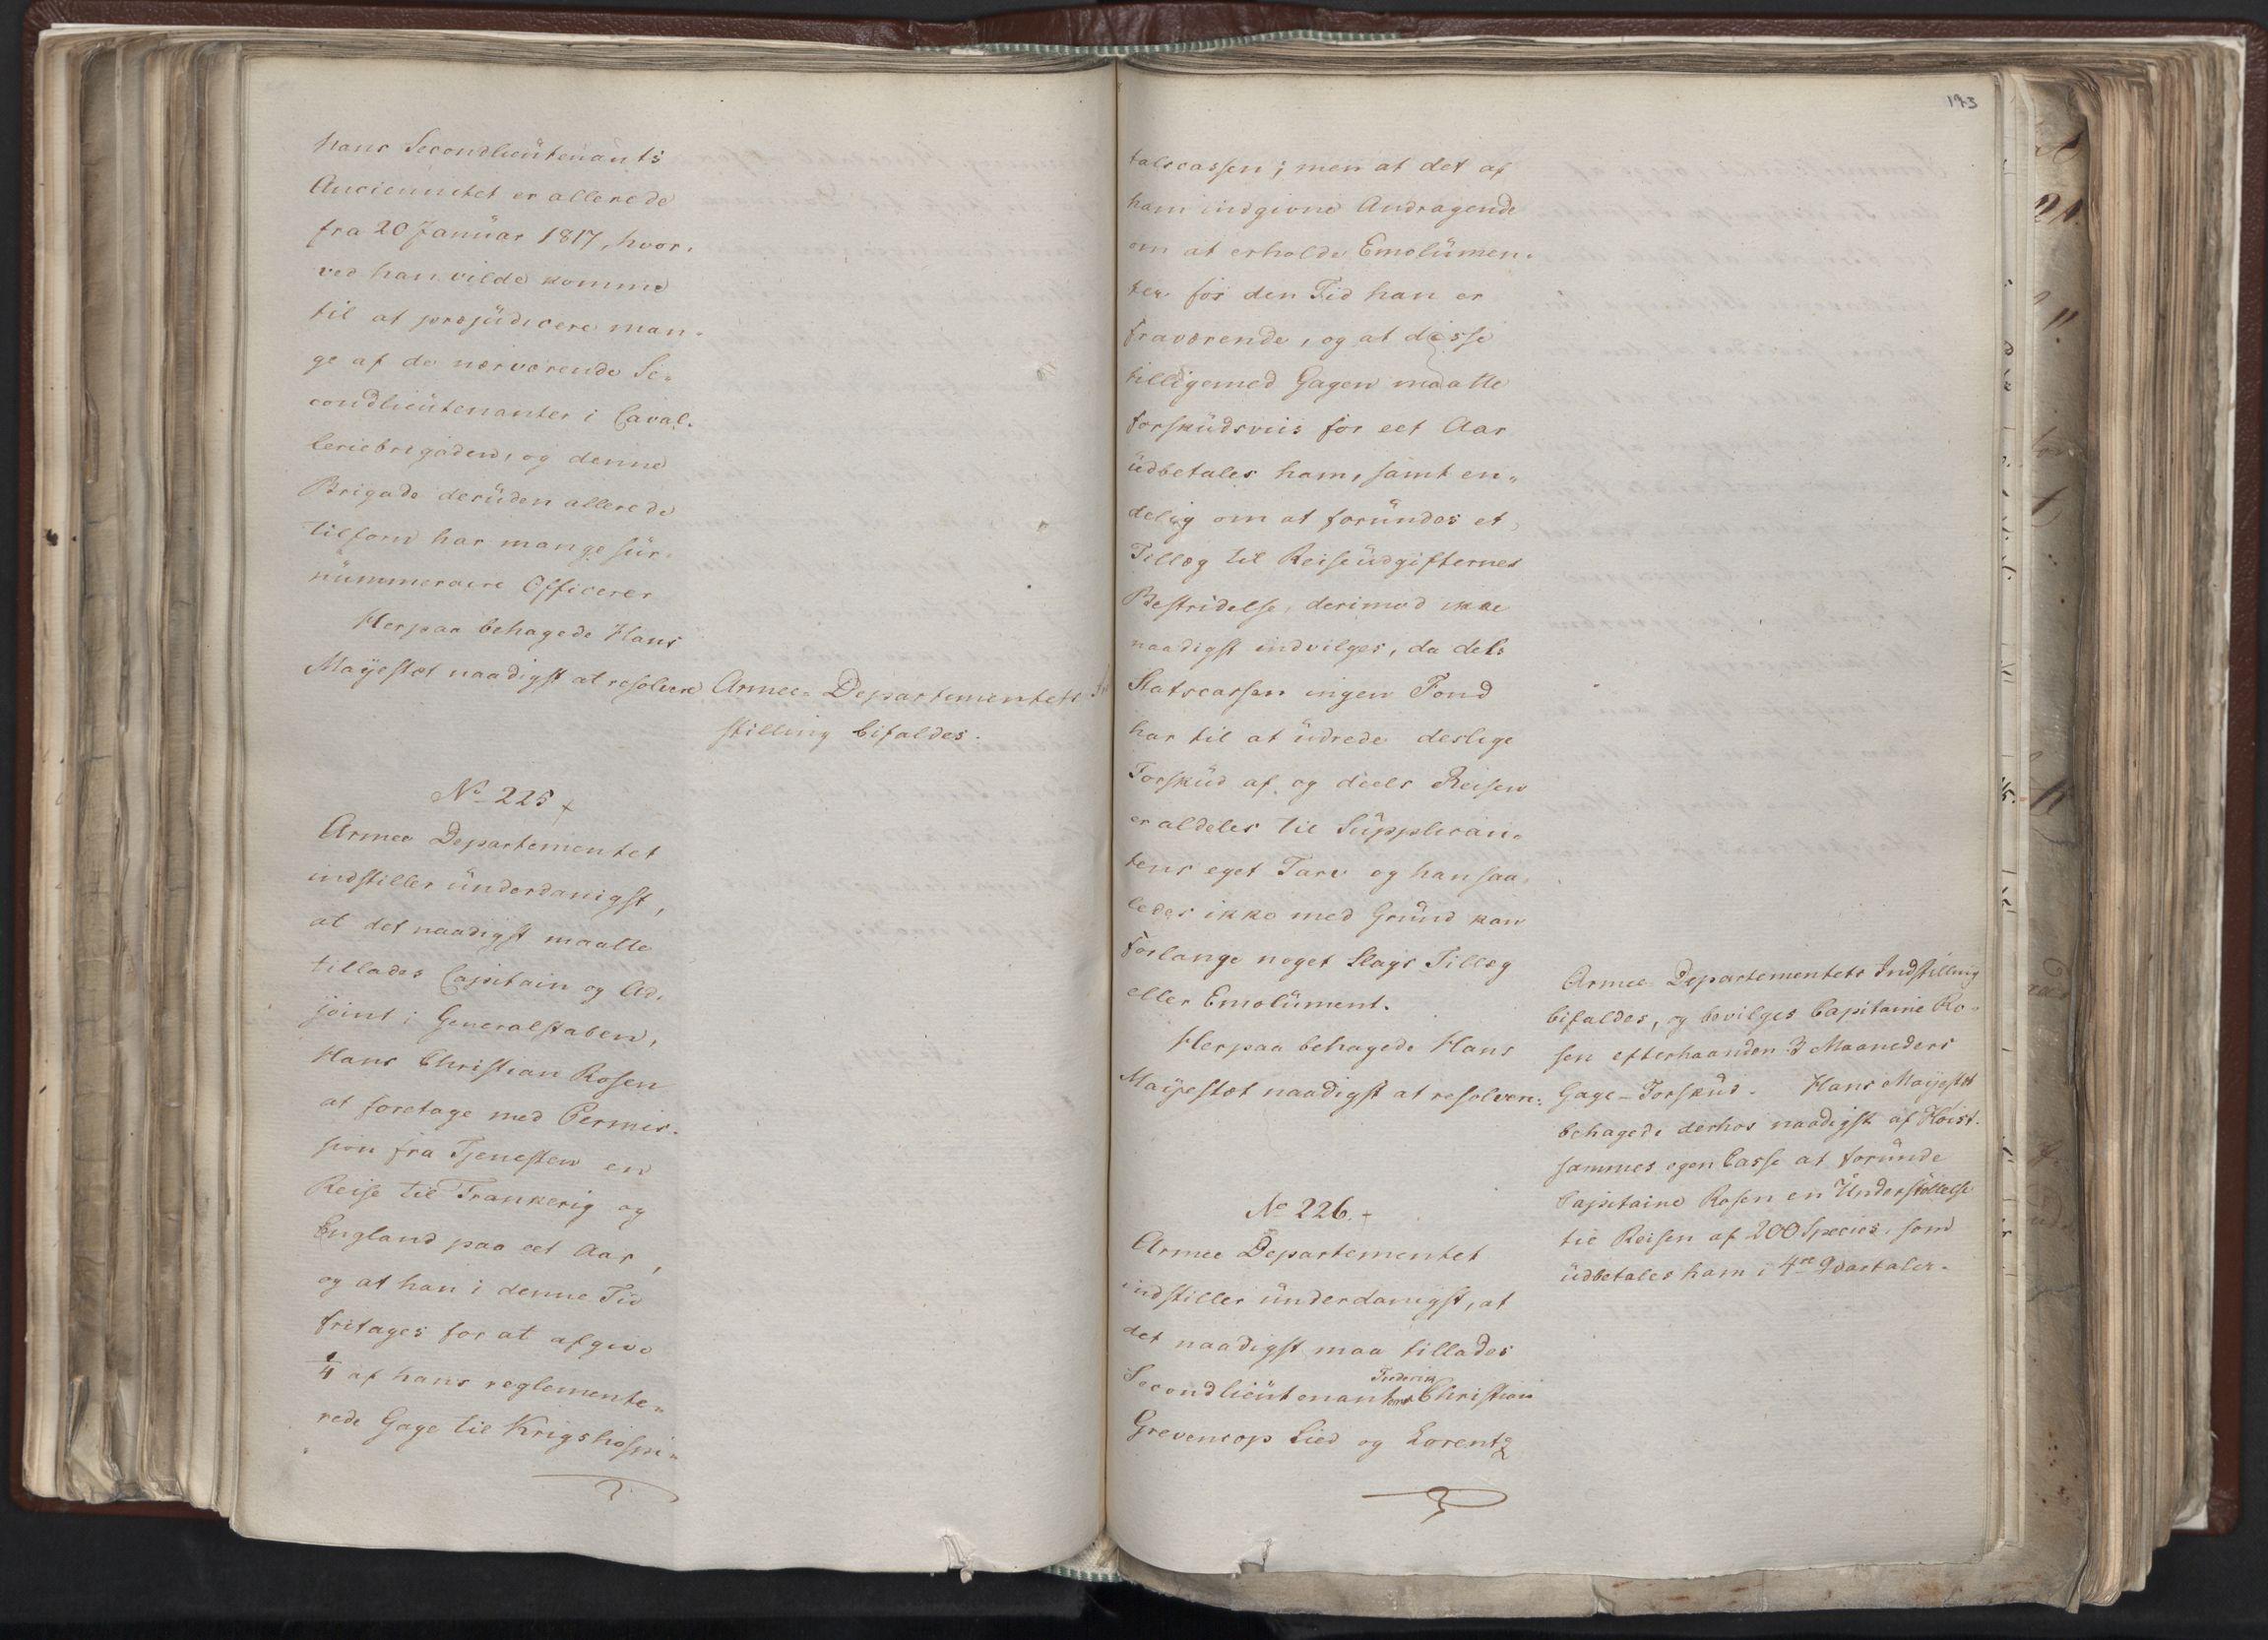 hans Secondlieutenants
Anciennitet er allerede
fra 20 Januar 1817, hvor„
ved han vilde komme
til at præjudicere man„
ge af de nærværende Se„
condlieutenanter i Caval„
leriebrigaden, og denne
Brigade deruden allerede
tilforn har mange sur„
nummeraire Officerer
Herpaa behagede Hans
Mayestæt naadigst at resolvere
Armee-Departementets Ind
stilling bifaldes.
No 225 +
Armee Departementet
indstiller underdanigst,
at det naadigst maatte
tillades Capitain og Ad„
joint i Generalstaben,
Hans Christian Rosen
at foretage med Permis„
sion fra Tjenesten en
Reise til Frankerig og
England paa eet Aar,
og at han i denne Tid
fritages for at afgive
1/4 af hans reglemente„
rede Gage til Krigshospi„
193
talscassen; men at det af
ham indgivne Andragende
om at erholde Emolumen„
ter for den Tid han er
fraværende, og at disse
tilligemed Gagen maatte
forskudsviis for eet Aar
udbetales ham, samt en„
delig om at forundes et
Tillæg til Reiseudgifternes
Bestridelse, derimod ikke
naadigst indvilges, da dels
Statscassen ingen Fond
har til at udrede deslige
Forskud af og deels Reisen
er aldeles til Supplican„
tens eget Tarv og han saa
ledes ikke med Grund kan
forlange noget Slags Tillæg
eller Emolument.
Herpaa behagede Hans
Mayestæt naadigst at resolvere:
Armee-Departementets Indstilling
bifaldes, og bevilges Capitaine Ro„
sen efterhaanden 3 Maaneders
Gage-Forskud. Hans Mayestæt
behagede derhos naadigst af Høist„
sammes egen Casse at forunde
Capitaine Rosen en Understøttelse
til Reisen af 200 Species, som
udbetales ham i 4re Qvartaler.
No 226. +
Armee Departementet
indstiller underdanigst, at
det naadigst maa tillades
Frederik
Secondlieutenanterne Christian
Grevencop Lied og Lorentz